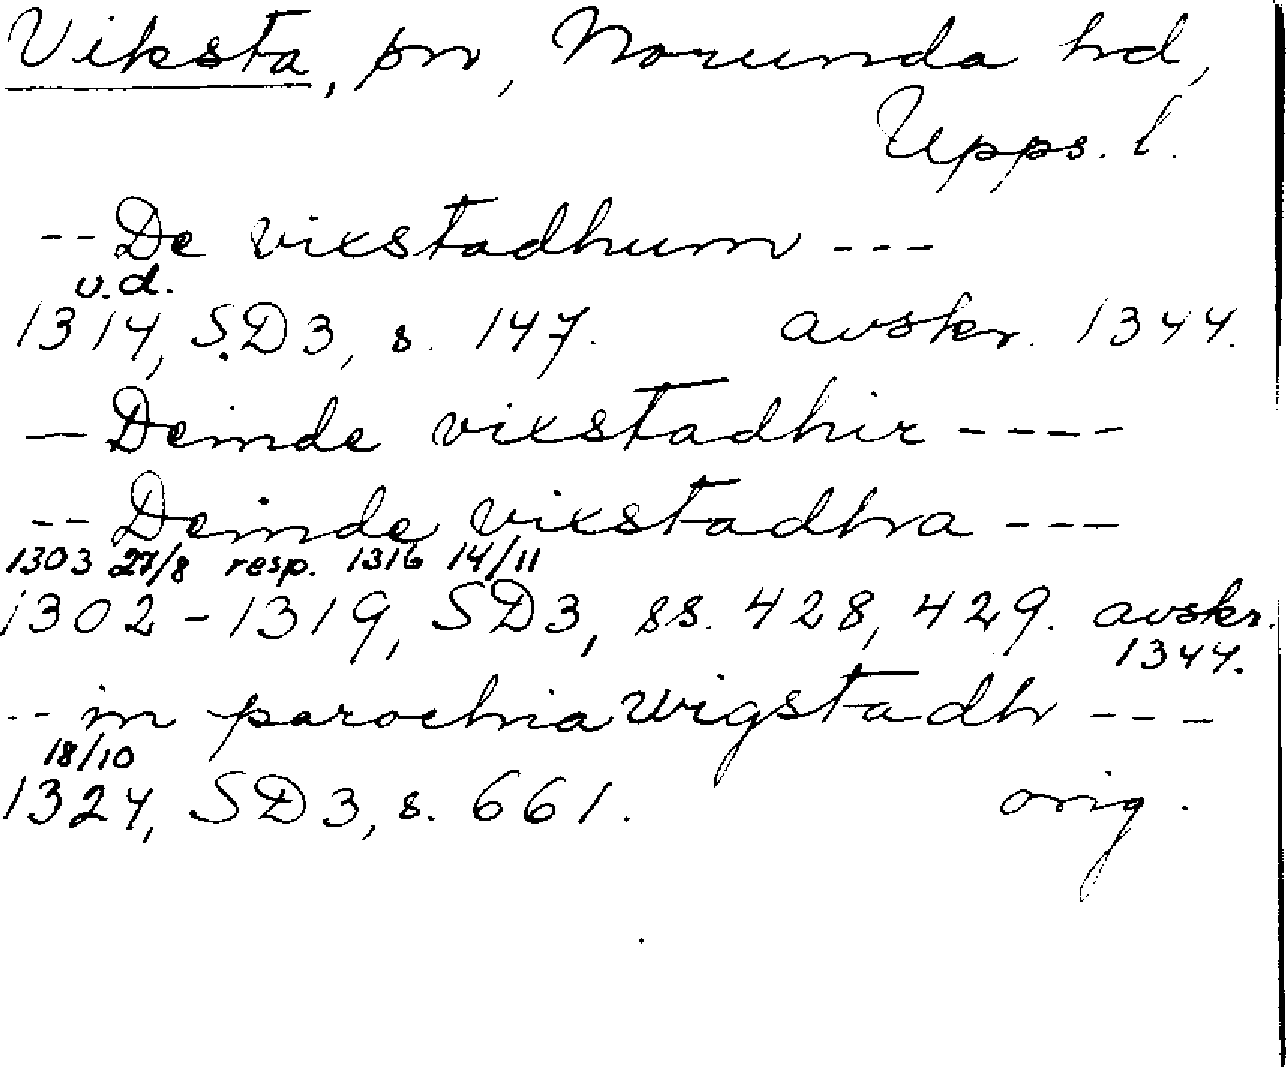 Viksta, sn, Norunda hd,
Upps. l.
-- De vixstadhum ---
u.d.
1314, SD3, s. 147. avskr. 1344.
— Deinde vixstadhir ----
-- Deinde vixstadhra ---
1303 27/8 resp. 1316 14/11
1302-1319, SD3, ss. 428, 429. avskr.
1344.
-- in parochia wigstadh ---
18/10
1324, SD3, s. 661. orig.